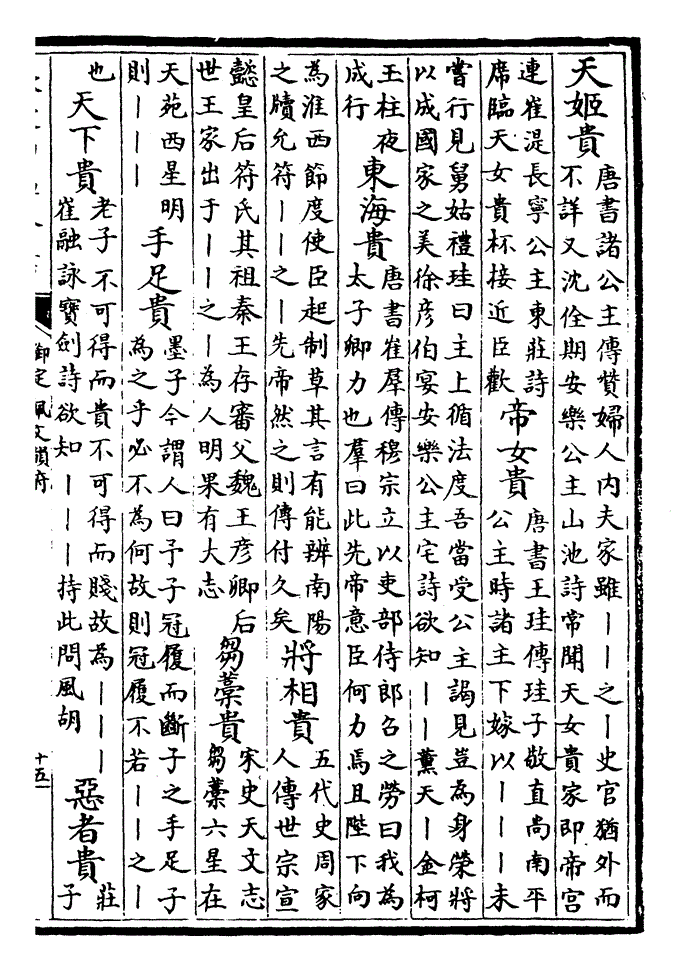 天姬貴
唐書諸公主傳贊婦人内夫家雖丨丨之丨史官猶外而
不詳又沈佺期安樂公主山池詩常聞天女貴家即帝宫
連崔湜長寧公主東莊詩
席臨天女貴杯接近臣歡
帝女貴
唐書王珪傳珪子敬直尚南平
公主時諸主下嫁以丨丨丨未
嘗行見舅姑禮珪曰主上循法度吾當受公主謁見豈為身榮將
以成國家之美徐彦伯宴安樂公主宅詩欲知丨丨薰天丨金柯
玉柱夜
成行
東海貴
唐書崔羣傳穆宗立以吏部侍郎召之勞曰我為
太子卿力也羣曰此先帝意臣何力焉且陛下向
為淮西節度使臣起制草其言有能辨南陽
之牘允符丨丨之丨先帝然之則傳付久矣
將相貴
五代史周家
人傳世宗宣
懿皇后符氏其祖秦王存審父魏王彦卿后
世王家出于丨丨之丨為人明果有大志
芻藁貴
宋史天文志
芻藁六星在
天苑西星明
則丨丨丨
手足貴
墨子今謂人曰予子冠履而斷子之手足子
為之乎必不為何故則冠履不若丨丨之丨
也
天下貴
老子不可得而貴不可得而賤故為丨丨丨
崔融詠寶劍詩欲知丨丨丨持此問風胡
惡者貴
莊
子
御定佩文韻府
十五